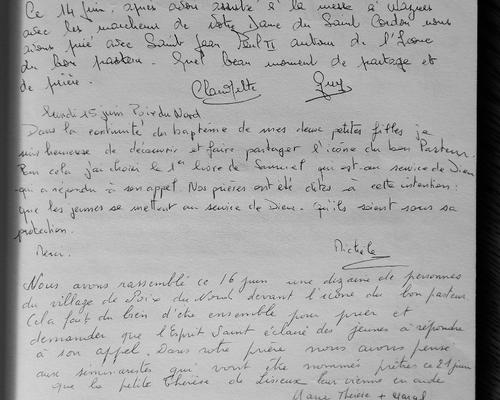 Ce 14 juin, après avoir assisté à la messe à
avec les marcheurs de Notre Dame du Saint Cordon nous
avons prié avec Saint Jean Paul II autour de l'Icone
du bon pasteur. Quel beau moment de partage et
de prière.
Guy
Lundi 15 juin Poix du Nord
Dans la continuité du baptême de mes deux petites filles je
suis heureuse de découvrir et faire partager l'icône du bon Pasteur.
Pour cela j'ai choisi le 1er livre de Samuel qui est au service de Dieu
qui a répondu à son appel. Nos prières ont été dites à cette intention:
que les jeunes se mettent au service de Dieu. Qu'ils soient sous sa
protection.
Merci.
Michele
Nous avons rassemblé ce 16 juin une dizaine de personnes
du village de Poix du Nord devant l'icône du bon pasteur
Cela fait du bien d'être ensemble pour prier et
demander que l'Esprit Saint éclaire des jeunes à répondre
à son appel. Dans notre prière nous avons pensé
aux séminaristes qui vont être nommés prêtres ce 21 juin
que la petite Thérèse de Lisieux leur vienne en aide
Marie Thérèse +